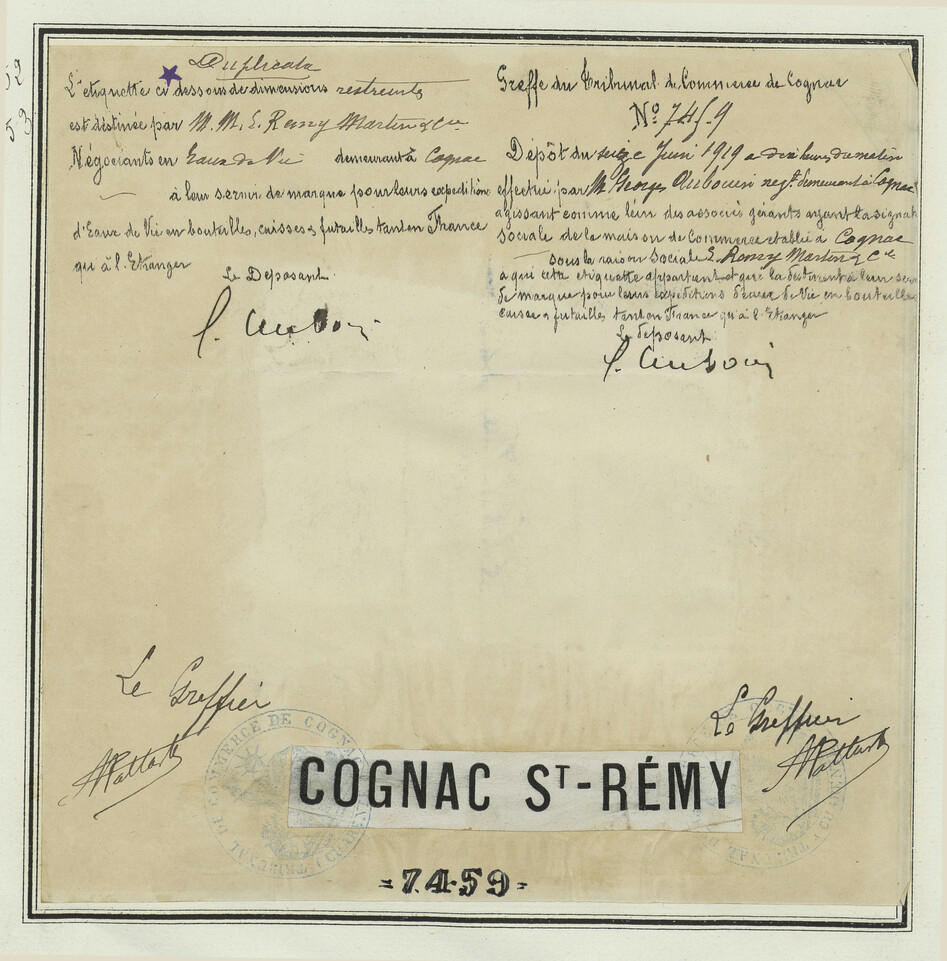 Duplicata
L'etiquette ci dessous de dimensions restreintes
est destinée par M. M. E. Remy Martin & Cie
Négociants en Eaux de Vie demeurant à Cognac
à leur servir de marque pour leurs expeditions
d'Eaux de Vie en bouteilles, caisses & futailles tant en France
qu à l'Etranger
Le Deposant
Greffe du Tribunal de Commerce de Cognac
No 7459
Dépôt du seize Juin 1919 a dix heures du matin
effectué par Mr Georges Auboin negt. demeurant à Cognac
agissant comme l'un des associés gérants ayant la signat
Sociale de la maison de Commerce etablie à Cognac
sous la raison Sociale E. Remy Martin & Cie
a qui cette etiquette appartient et qui la destinent à leur ser
de marque pour leurs expeditions d'eaux de Vie en bouteille
caisse & futailles tant en France qu'à l'Etranger
Le deposant
Le Greffier
Le Greffier
TRIBUNAL DE COMMERCE DE COGNAC
COGNAC ST-RÉMY
=7459=